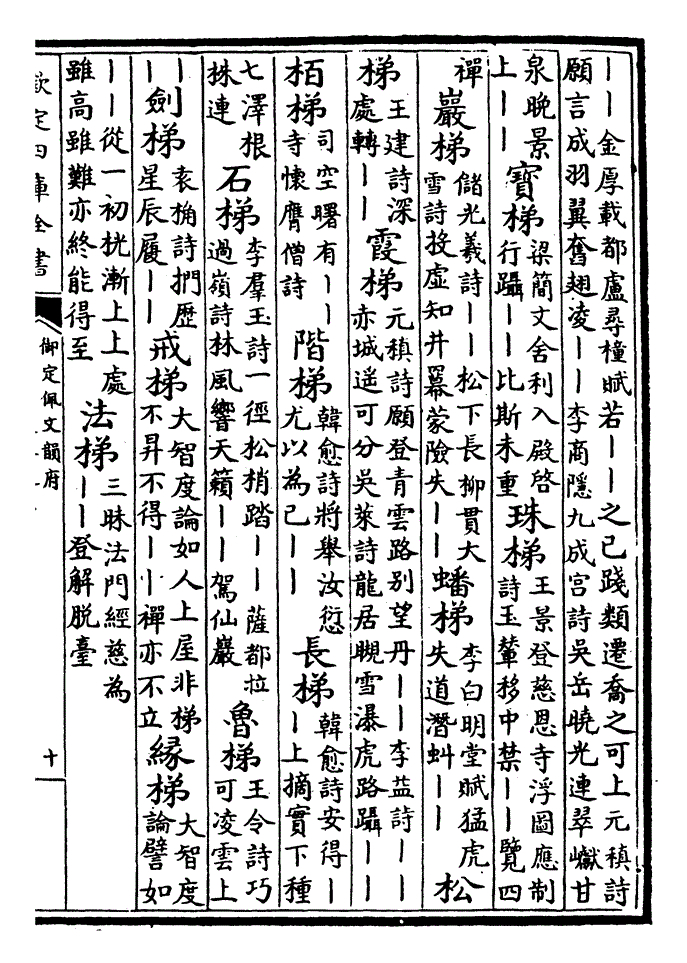 ｜｜金厚載都盧尋橦賦若｜｜之已踐類遷喬之可上元稹詩
願言成羽翼奮翅凌｜｜李商隱九成宮詩吳岳曉光連翠巘甘
泉晚景上｜｜｜寶梯梁簡文舍利入殿啓行躡｜｜比斯未重珠梯王景登慈恩寺浮圖應制詩玉輦移中禁｜｜覽四
禪巖梯儲光羲詩｜｜松下長柳貫大雪詩投虛知井羃蒙險失｜｜蟠梯李白明堂賦猛虎失道潛虯｜｜松
梯王建詩深處轉｜｜霞梯元稹詩願登青雲路別望丹｜｜李益詩｜｜赤城遙可分吳萊詩龍居覗雪瀑虎路躡｜｜｜
栢梯司空曙有｜｜寺懷膺僧詩階梯韓愈詩將舉汝愆尤以為己｜｜長梯韓愈詩安得｜｜上摘實下種
七澤根株連石梯李羣玉詩一徑松梢踏｜｜薩都拉過嶺詩林風響天籟｜｜駕仙巖魯梯王令詩巧可凌雲上
｜｜劍梯袁桷詩捫歷星辰屨｜｜戒梯大智度論如人上屋非梯不昇不得｜｜禪亦不立緣梯大智度論譬如
｜｜從一初桄漸上上處雖高雖難亦終能得至法梯三昧法門經慈為｜｜登解脫臺
欽定四庫全書
御定佩文韻府
十